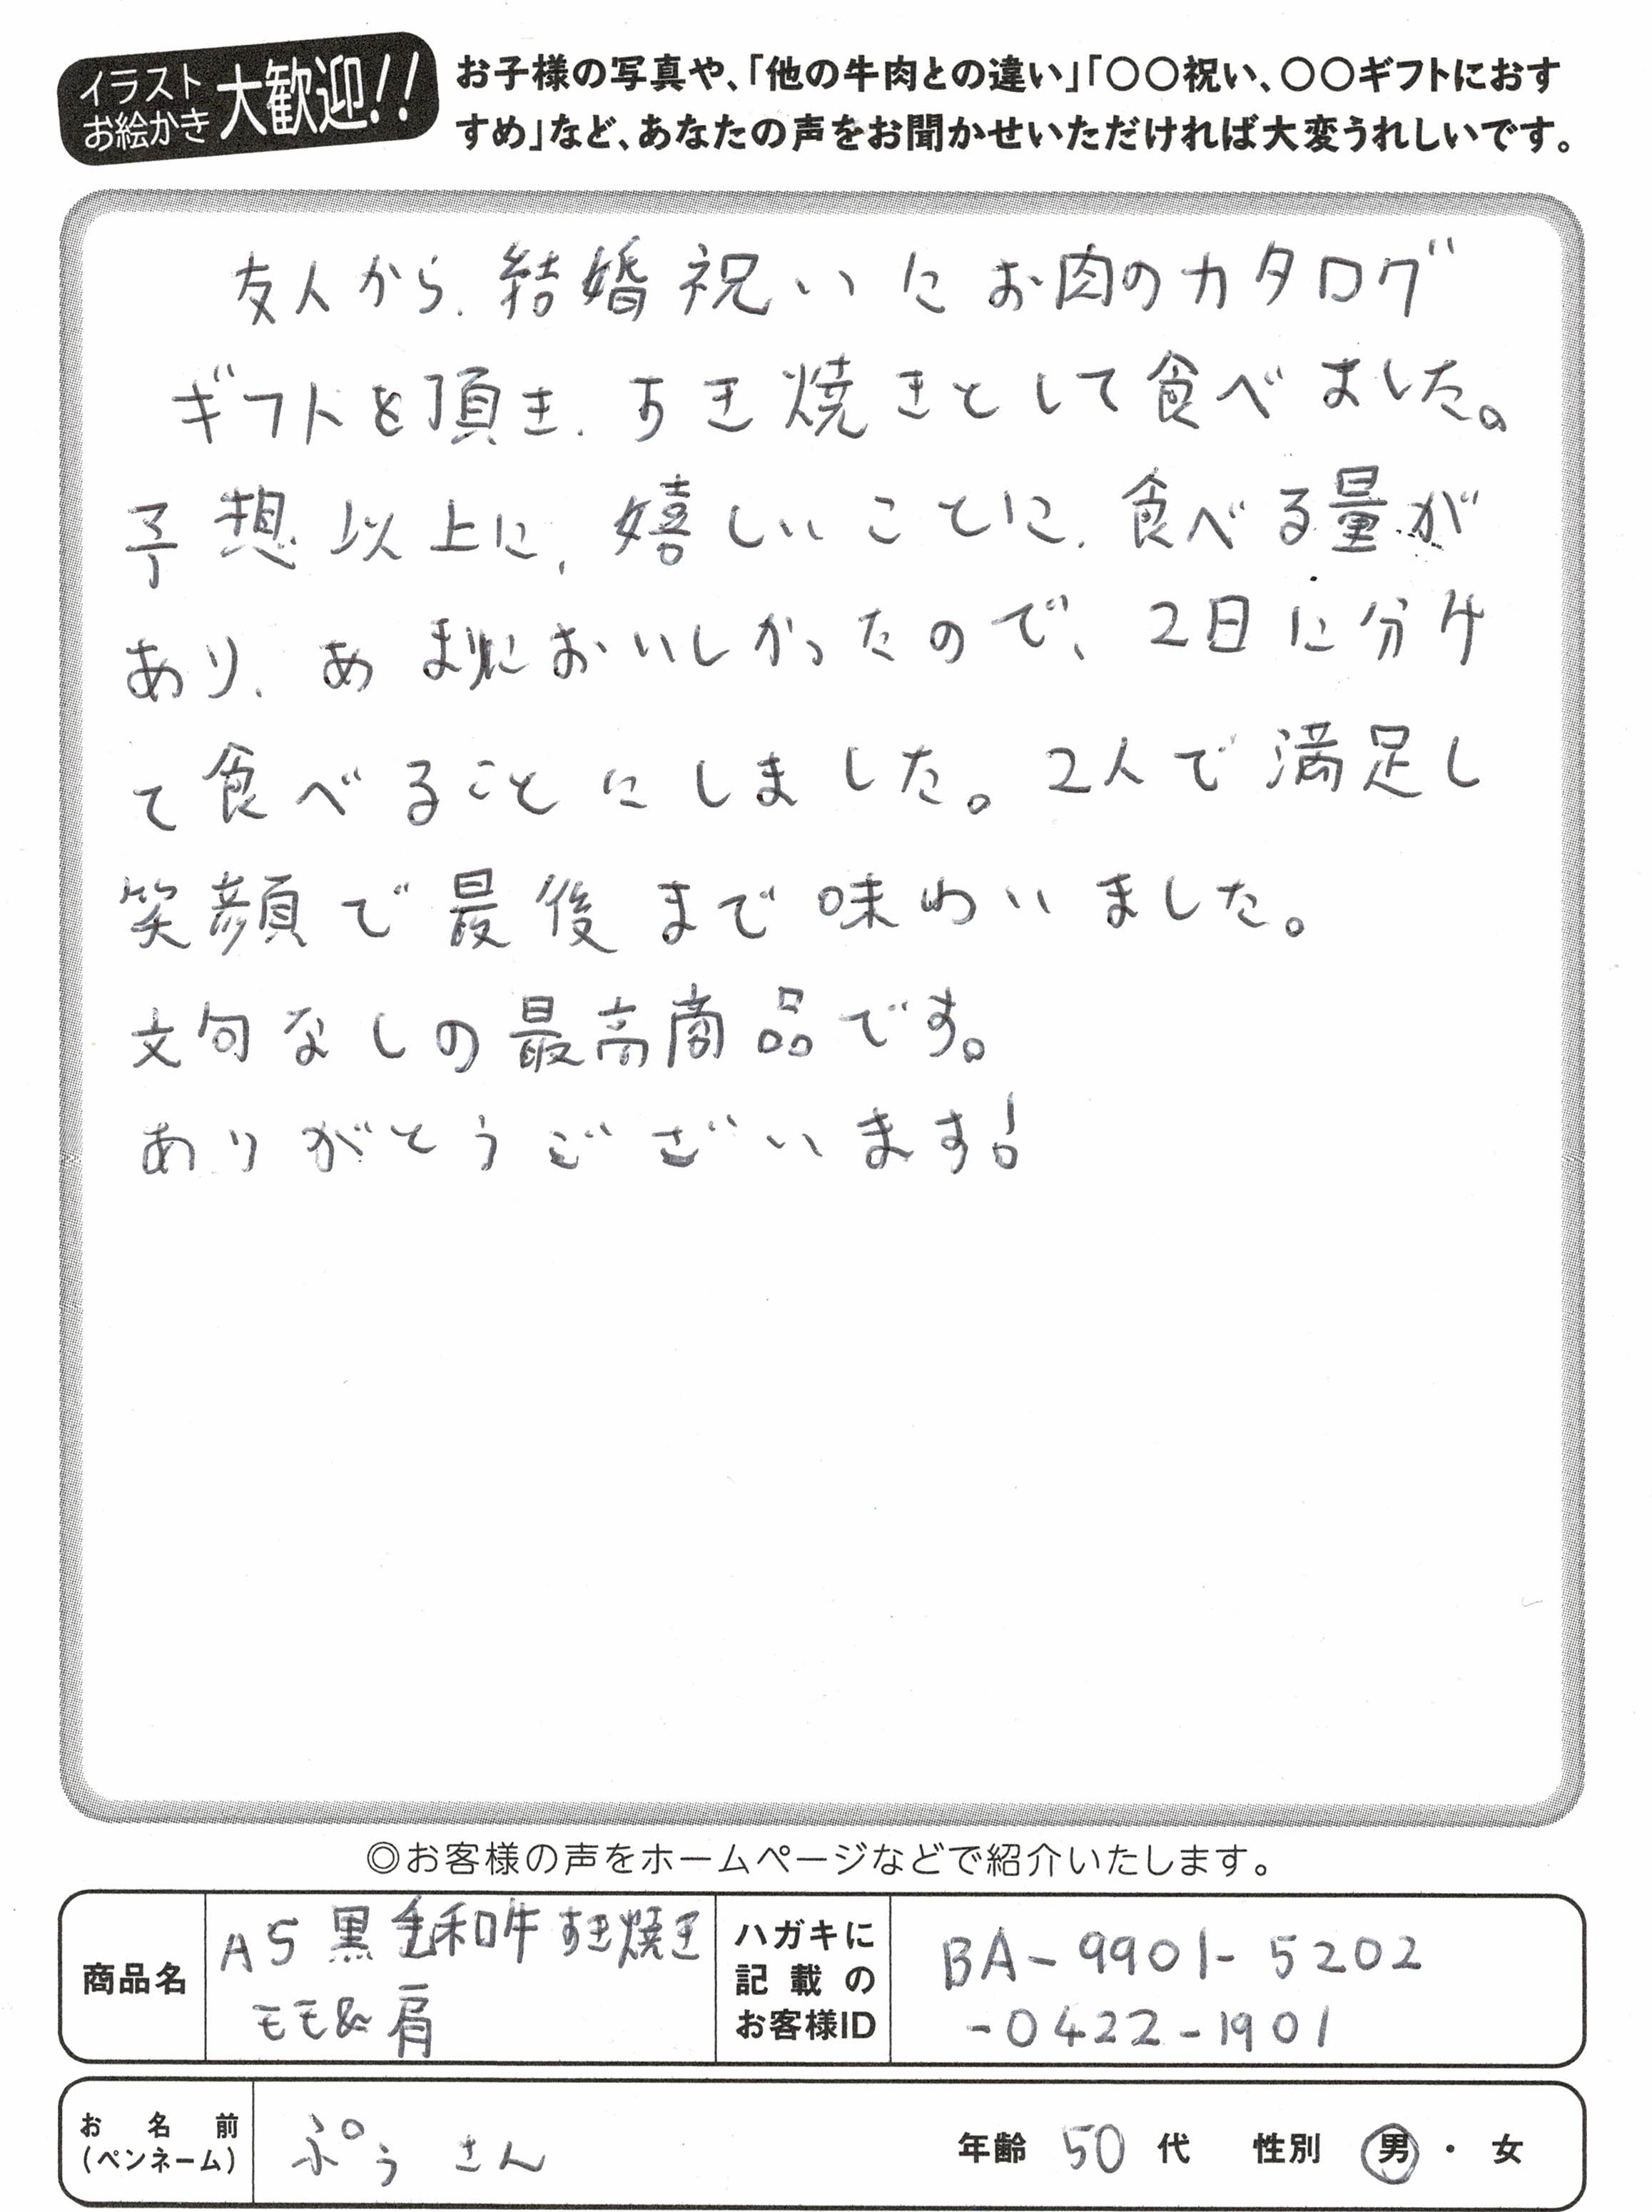 イラスト
お絵かき
大歓迎!!
お子様の写真や、「他の牛肉との違い」「〇〇祝い、〇〇ギフトにおす
すめ」など、あなたの声をお聞かせいただければ大変うれしいです。
友人から、結婚祝いにお肉のカタログ
ギフトを頂き、すき焼きとして食べました。
予想以上に、嬉しいことに、食べる量が
あり、あまりにおいしかったので、2日に分け
て食べることにしました。2人で満足し
笑顔で最後まで味わいました。
文句なしの最高商品です。
ありがとうございます!
◎お客様の声をホームページなどで紹介いたします。
商品名
A5黒毛和牛すき焼き
モモ&肩
ハガキに
記載の
お客様ID
BA-9901-5202
-0422-1901
お名前
(ペンネーム)
ぷぅさん
年齢 50代 性別 男・女